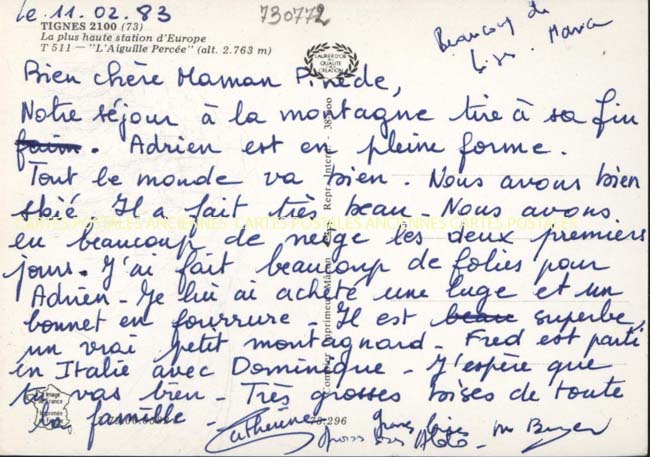 le 11.02.83
730772
TIGNES 2100 (73)
La plus haute station d'Europe
T 511 — "L'Aiguille Percée" (alt. 2.763 m)
Beaucoup de
LAURIER D'OR
QUALITÉ
CREATION
Bien chère Maman Pinède,
Notre séjour à la montagne tire à sa fin
faim. Adrien est en pleine forme.
Tout le monde va bien. Nous avons bien
skié. Il a fait très beau. Nous avons
eu beaucoup de neige les deux premiers
jours. J'ai fait beaucoup de folies pour
Adrien - Je lui ai acheté une luge et un
bonnet en fourrure - Il est beau superbe,
un vrai petit montagnard - Fred est parti
en Italie avec Dominique - J'espère que
tu vas bien - Très grosses bises de toute
la famille -
Catherine
grosses bises
Combier Imprimeur Mâcon
Repr. Interd.
CARTES POSTALES ANCIENNES CARTES POSTALES ANCIENNES CARTES POSTALES
Image
de France
Imprimée
en France
73.296